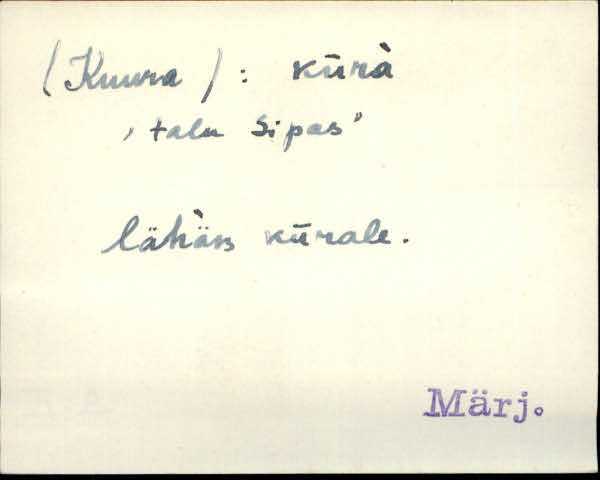 (Kuura): kūrà
‚talu Sipas’
lähàn kūrale.
Märj.